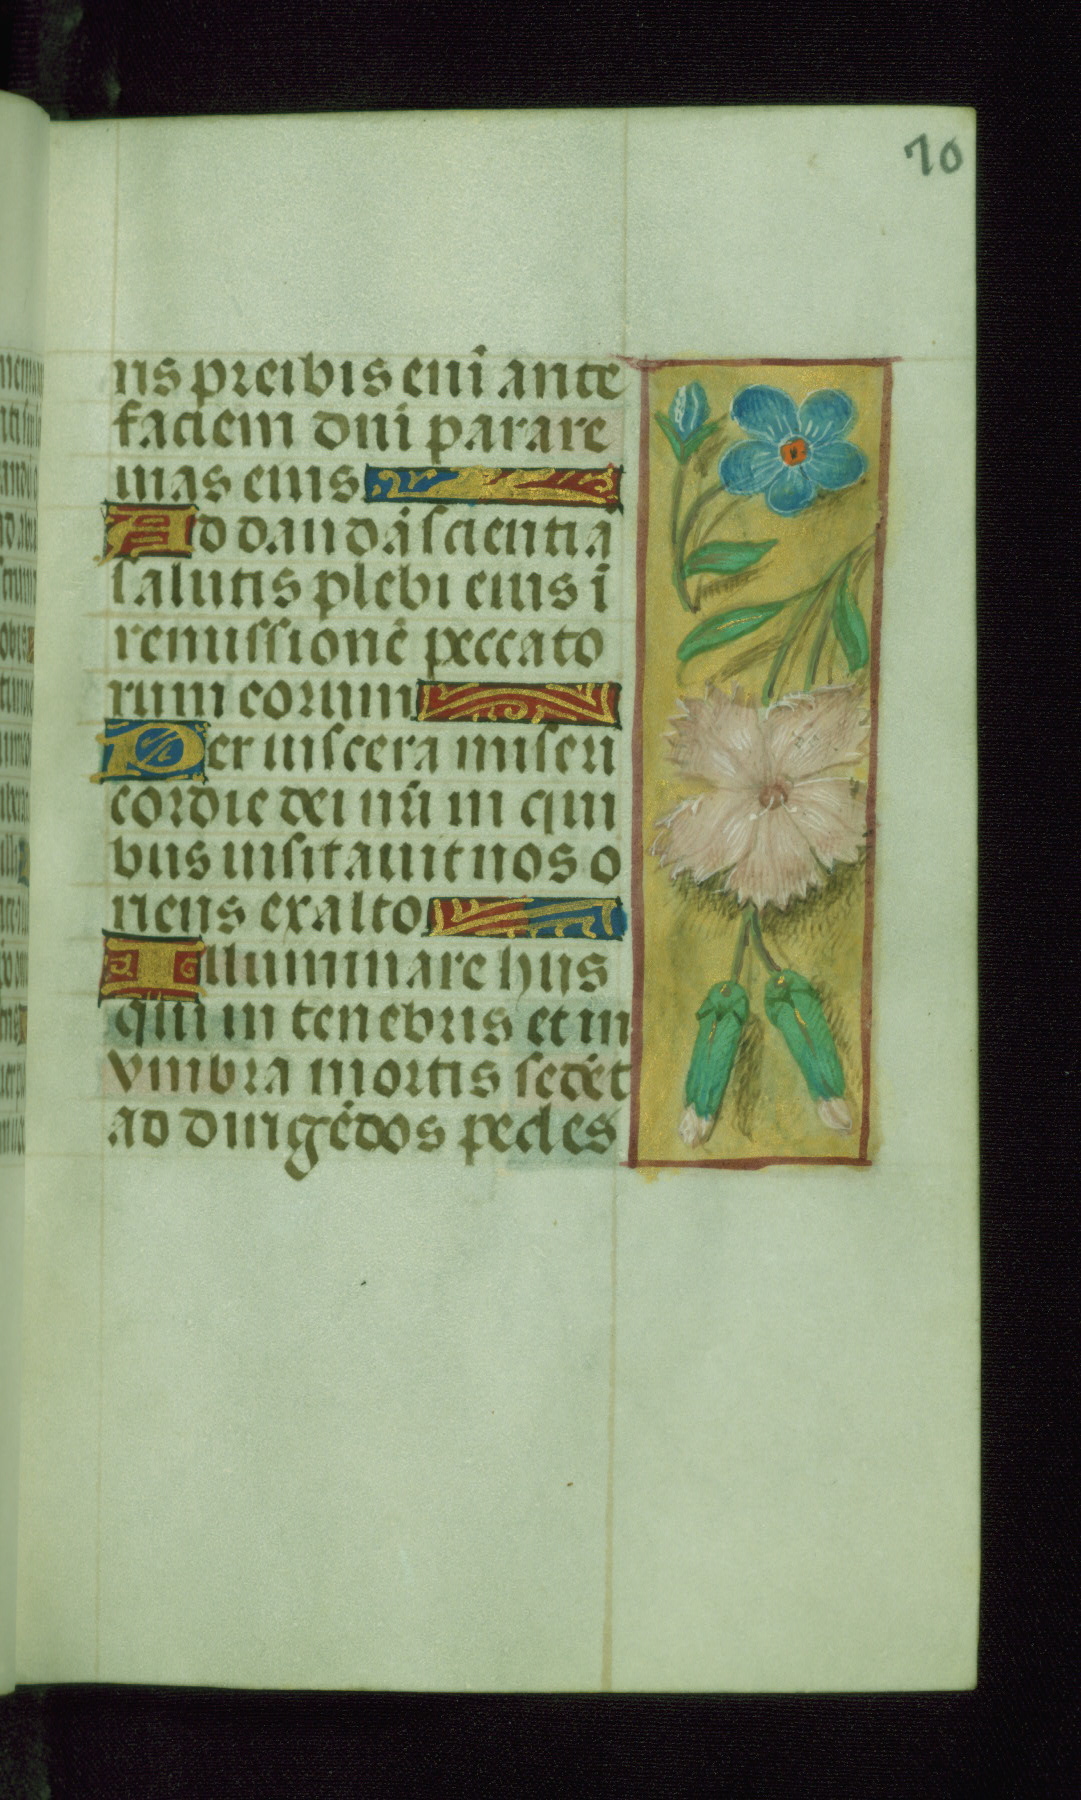 70
ris preibis eni ante
faciem dni parare
uias eius
Ad dandā scientiā
salutis plebi eius ī
remissionē peccato
rum eorum
Per uiscera miseri
cordie dei nr̄i in qui
bus uisitauit nos o
riens exalto
Illuminare hiis
qui in tenebris et in
vmbra mortis sedēt
ad dirigēdos pedes